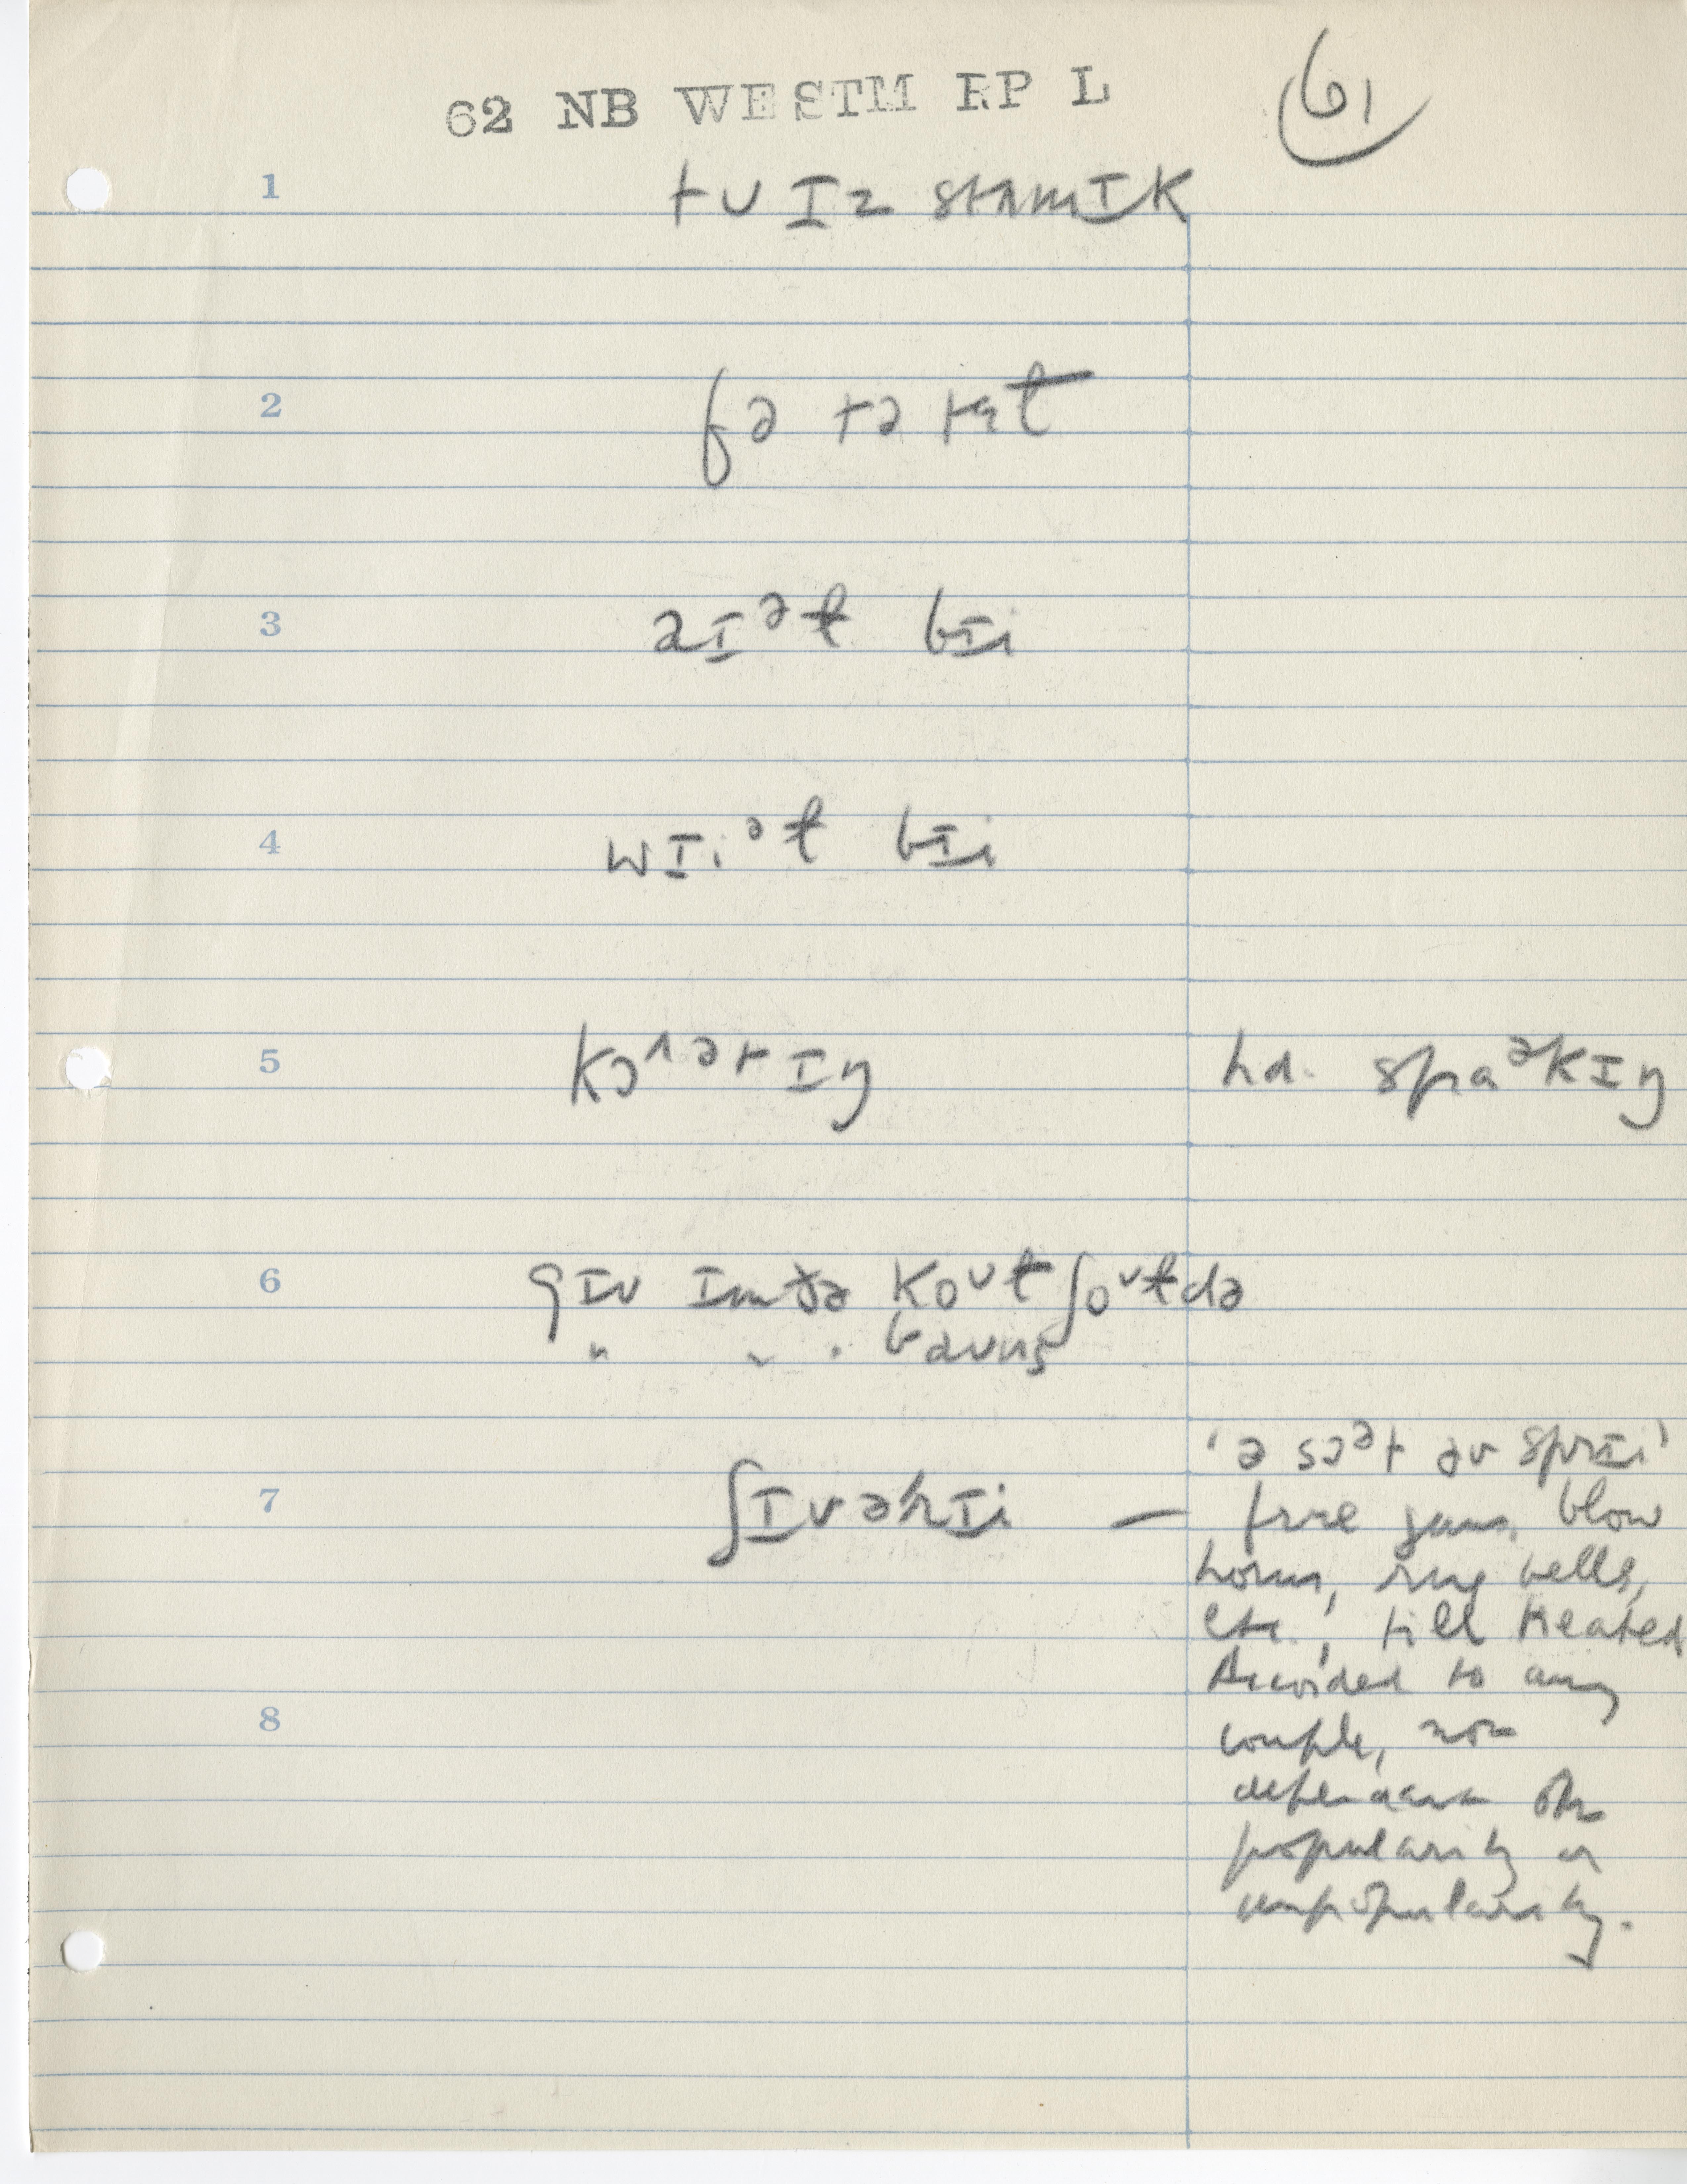 62 NB WESTM RP L
61
1 tʊ ɪz stʌmɪk
2 fə tə tɛɫ
3 aɪᵊɫ bɪi
4 wɪiᵊɫ bɪi
5 kɔ^ərtɪŋ hd. spaᵊkɪŋ
6 gɪv ɪm ðə koᵘɫ ʃoᵘɫdə
" " " baʊns
7 ʃɪvərɪi — 'ə sɔᵊt əv sprɪi'
fire guns, blow
horns, ring bells,
etc., till treated
Accorded to any
couple, not
dependent on
popularity or
unpopularity.
8